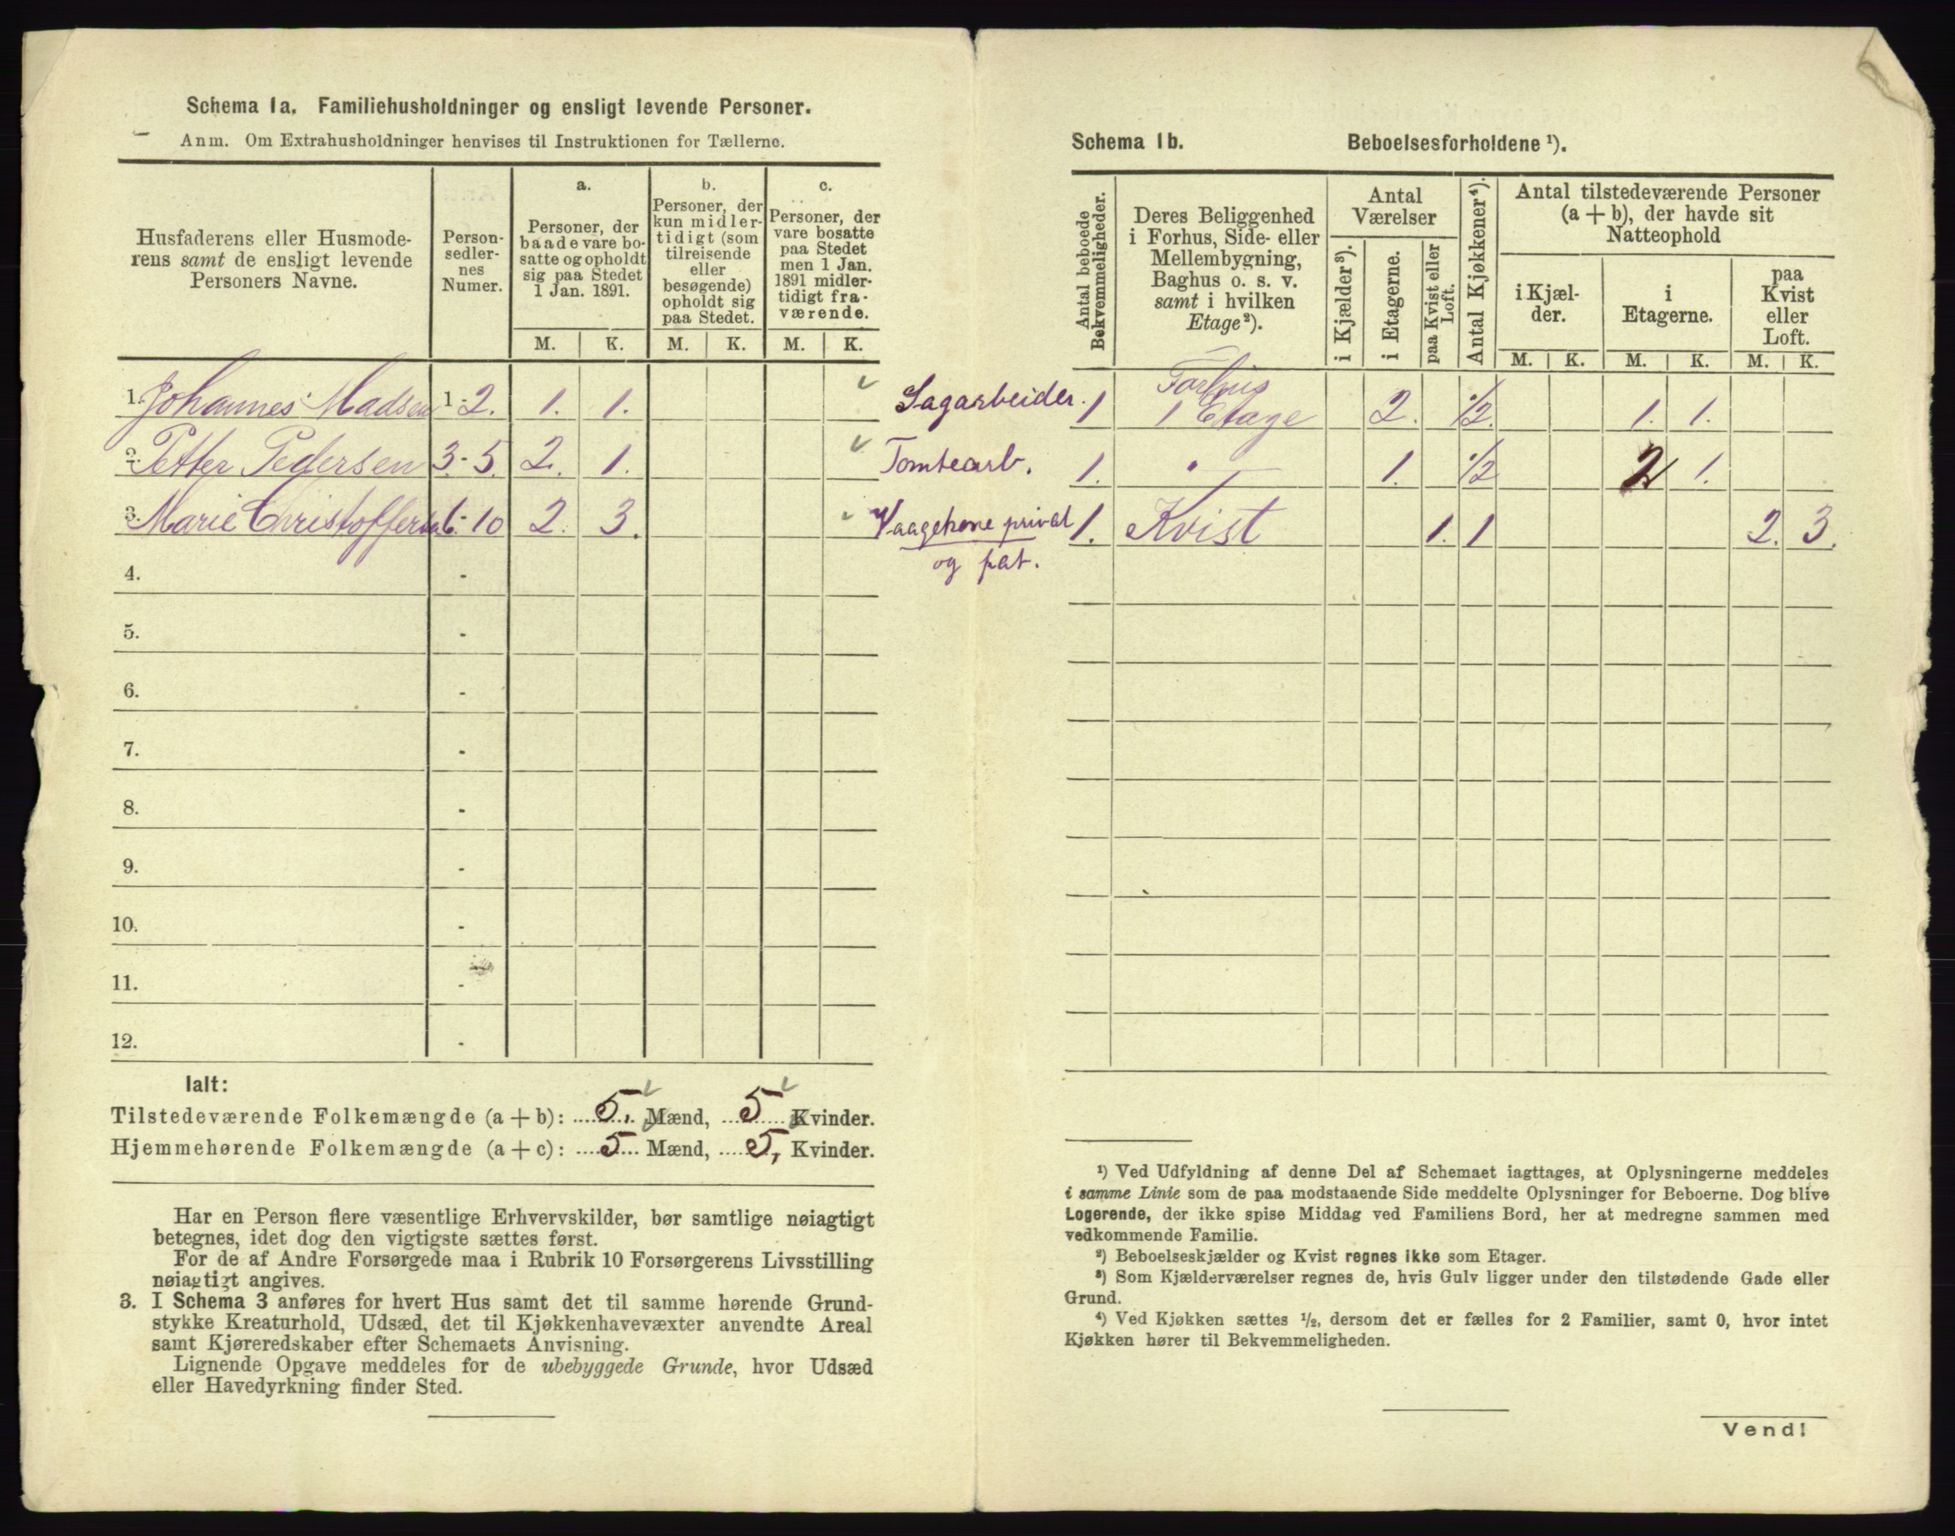 Schema 1a. Familiehusholdninger og ensligt levende Personer.
Anm. Om Extrahusholdninger henvises til Instruktionen for Tællerne.
Husfaderens eller Husmode-
rens samt de ensligt levende
Personers Navne.
Person-
sedler-
nes
Numer.
a.
Personer, der
baade vare bo-
satte og opholdt
sig paa Stedet
1 Jan. 1891.
b.
Personer, der
kun midler-
tidigt (som
tilreisende
eller
besøgende)
opholdt sig
paa Stedet.
c.
Personer, der
vare bosatte
paa Stedet
men 1 Jan.
1891 midler-
tidigt fra-
værende.
M. K. M. K. M. K.
1. Johannes Madsen 1-2. 1. 1. Sagarbeider.
2. Petter Pedersen 3.-5. 2. 1. Tomtearb.
3. Marie Christoffersen 6-10 2. 3. Vaagekone privat
og pat.
4. -
5. -
6. -
7. -
8. -
9. -
10. -
11. -
12. -
Ialt:
Tilstedeværende Folkemængde (a + b): 5. Mænd, 5 Kvinder.
Hjemmehørende Folkemængde (a + c): 5 Mænd, 5, Kvinder.
Har en Person flere væsentlige Erhvervskilder, bør samtlige nøiagtigt
betegnes, idet dog den vigtigste sættes først.
For de af Andre Forsørgede maa i Rubrik 10 Forsørgerens Livsstilling
nøiagtigt angives.
3. I Schema 3 anføres for hvert Hus samt det til samme hørende Grund-
stykke Kreaturhold, Udsæd, det til Kjøkkenhavevæxter anvendte Areal
samt Kjøreredskaber efter Schemaets Anvisning.
Lignende Opgave meddeles for de ubebyggede Grunde, hvor Udsæd
eller Havedyrkning finder Sted.
Schema 1b. Beboelsesforholdene ¹).
Antal beboede
Bekvemmeligheder.
Deres Beliggenhed
i Forhus, Side- eller
Mellembygning,
Baghus o. s. v.
samt i hvilken
Etage²).
Antal
Værelser
i Kjælder³).
i Etagerne.
paa Kvist eller
Loft.
Antal Kjøkkener⁴).
Antal tilstedeværende Personer
(a + b), der havde sit
Natteophold
i Kjæl-
der.
i
Etagerne.
paa
Kvist
eller
Loft.
M. K. M. K. M. K.
Forhus
1 1 Etage 2. 1/2. 1. 1.
1. 1. 1/2 2 1.
1. Kvist 1. 1 2. 3.
¹) Ved Udfyldning af denne Del af Schemaet iagttages, at Oplysningerne meddeles
i samme Linie som de paa modstaaende Side meddelte Oplysninger for Beboerne. Dog blive
Logerende, der ikke spise Middag ved Familiens Bord, her at medregne sammen med
vedkommende Familie.
²) Beboelseskjælder og Kvist regnes ikke som Etager.
³) Som Kjælderværelser regnes de, hvis Gulv ligger under den tilstødende Gade eller
Grund.
⁴) Ved Kjøkken sættes ½, dersom det er fælles for 2 Familier, samt 0, hvor intet
Kjøkken hører til Bekvemmeligheden.
Vend!